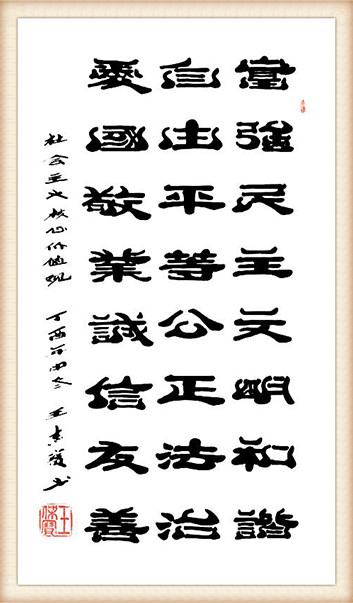 富強民主文明和諧
自由平等公正法治
愛國敬業誠信友善
社会主义核心价值观 丁酉 冬 王 书